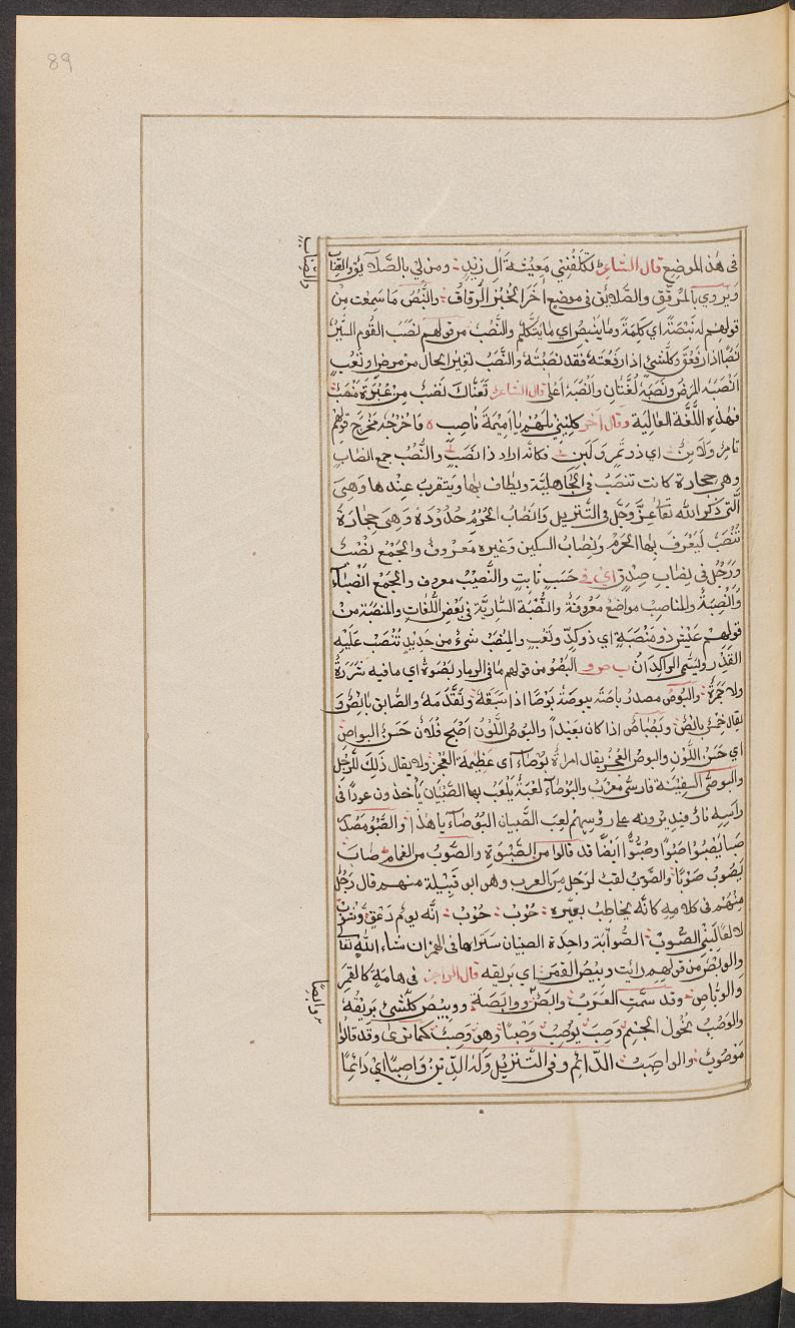 89
فى هذا الموضع قال الشاعر تكلفنى معيشة آل زيد ومن لى بالصلائق والصناب
ويروى بالمرقق والصلائق فى موضع اخر الخبز الرقاق والنبص ما سمعت من
قولهم له نبصة اى كلمة وما ينبص اى ما يتكلم والنصب من قولهم نصب القوم السير
نصبا اذا رفعوه وكل شئ اذا رفعته فقد نصبته والنصب تغير الحال من مرض او تعب
انصبه المرض ونصبه لغتان وانصبه اعلى قال الشاعر تعناك نصب من عميرة منصب
فهذه اللغة العالية وقال آخر كلينى لهم يا اميمة ناصب فاخرجه مخرج قولهم
تامر ولابن اى ذو تمر ولبن فكانه اراد ذا نصب والنصب جمع النصاب
وهى حجارة كانت تنصب فى الجاهلية ويطاف بها ويتقرب عندها وهى
التى ذكر الله تعالى عز وجل فى التنزيل وانصاب الحرم حدوده وهى حجارة
تنصب ليعرف بها الحرم ونصاب السكين وغيره معروف والجمع نصب
ورجل فى نصاب صدق اى فى حسب ثابت والنصيب معروف والجمع انصباء
وانصبة والمناصب مواضع معروفة والنصبة السارية فى بعض اللغات والمنصبة من
قولهم عيش ذو منصبة اى ذو كد وتعب والمنصب شئ من حديد تنصب عليه
القدر وليسمى الواكدان ب ص و البصو من قولهم ما فى الرماد بصوة اى ما فيه شررة
ولا جمرة والبوص مصدر باصه يبوصه بوصا اذا سبقه وتقدمه والسابق بائص و
يقال خمس بائص وبصباص اذا كان بعيدا والبوص اللون اصبح فلان حسن البواص
اى حسن اللون والبوص العجز يقال امرأة بوصاء اى عظيمة العجز ولا يقال ذلك للرجل
والبوصى السفينة فارسى معرب والبوصاء لعبة يلعب بها الصبيان ياخذون عودا فى
راسه نار فيديرونه على رؤسهم لعب الصبيان البوصاء يا هذا والصبو مصدر
صبا يصبو صبوا وصبوا ايضا قد قالوا من الصبوة والصوب من الغمام صاب
يصوب صوبا والصوب لقب لرجل من العرب وهو ابو قبيلة منهم قال رجل
منهم فى كلامه كانه يخاطب بعيره حوب حوب انه يوم دعق وشوب
لا لعا لبنى الصوب الصوابة واحدة الصبيان ستراها فى الهمز ان شاء الله تعالى
والوبص من قولهم رايت وبيص القمر اى بريقه قال الراجز فى هامة كالقمر
والوباص وقد سمت العرب وابص ووابصة ووبيص كل شئ بريقه
والوصب نحول الجسم وصب يوصب وصبا وهو وصب كما ترى وقد قالوا
موصوب والواصب الدائم وفى التنزيل وله الدين واصبا اى دائما